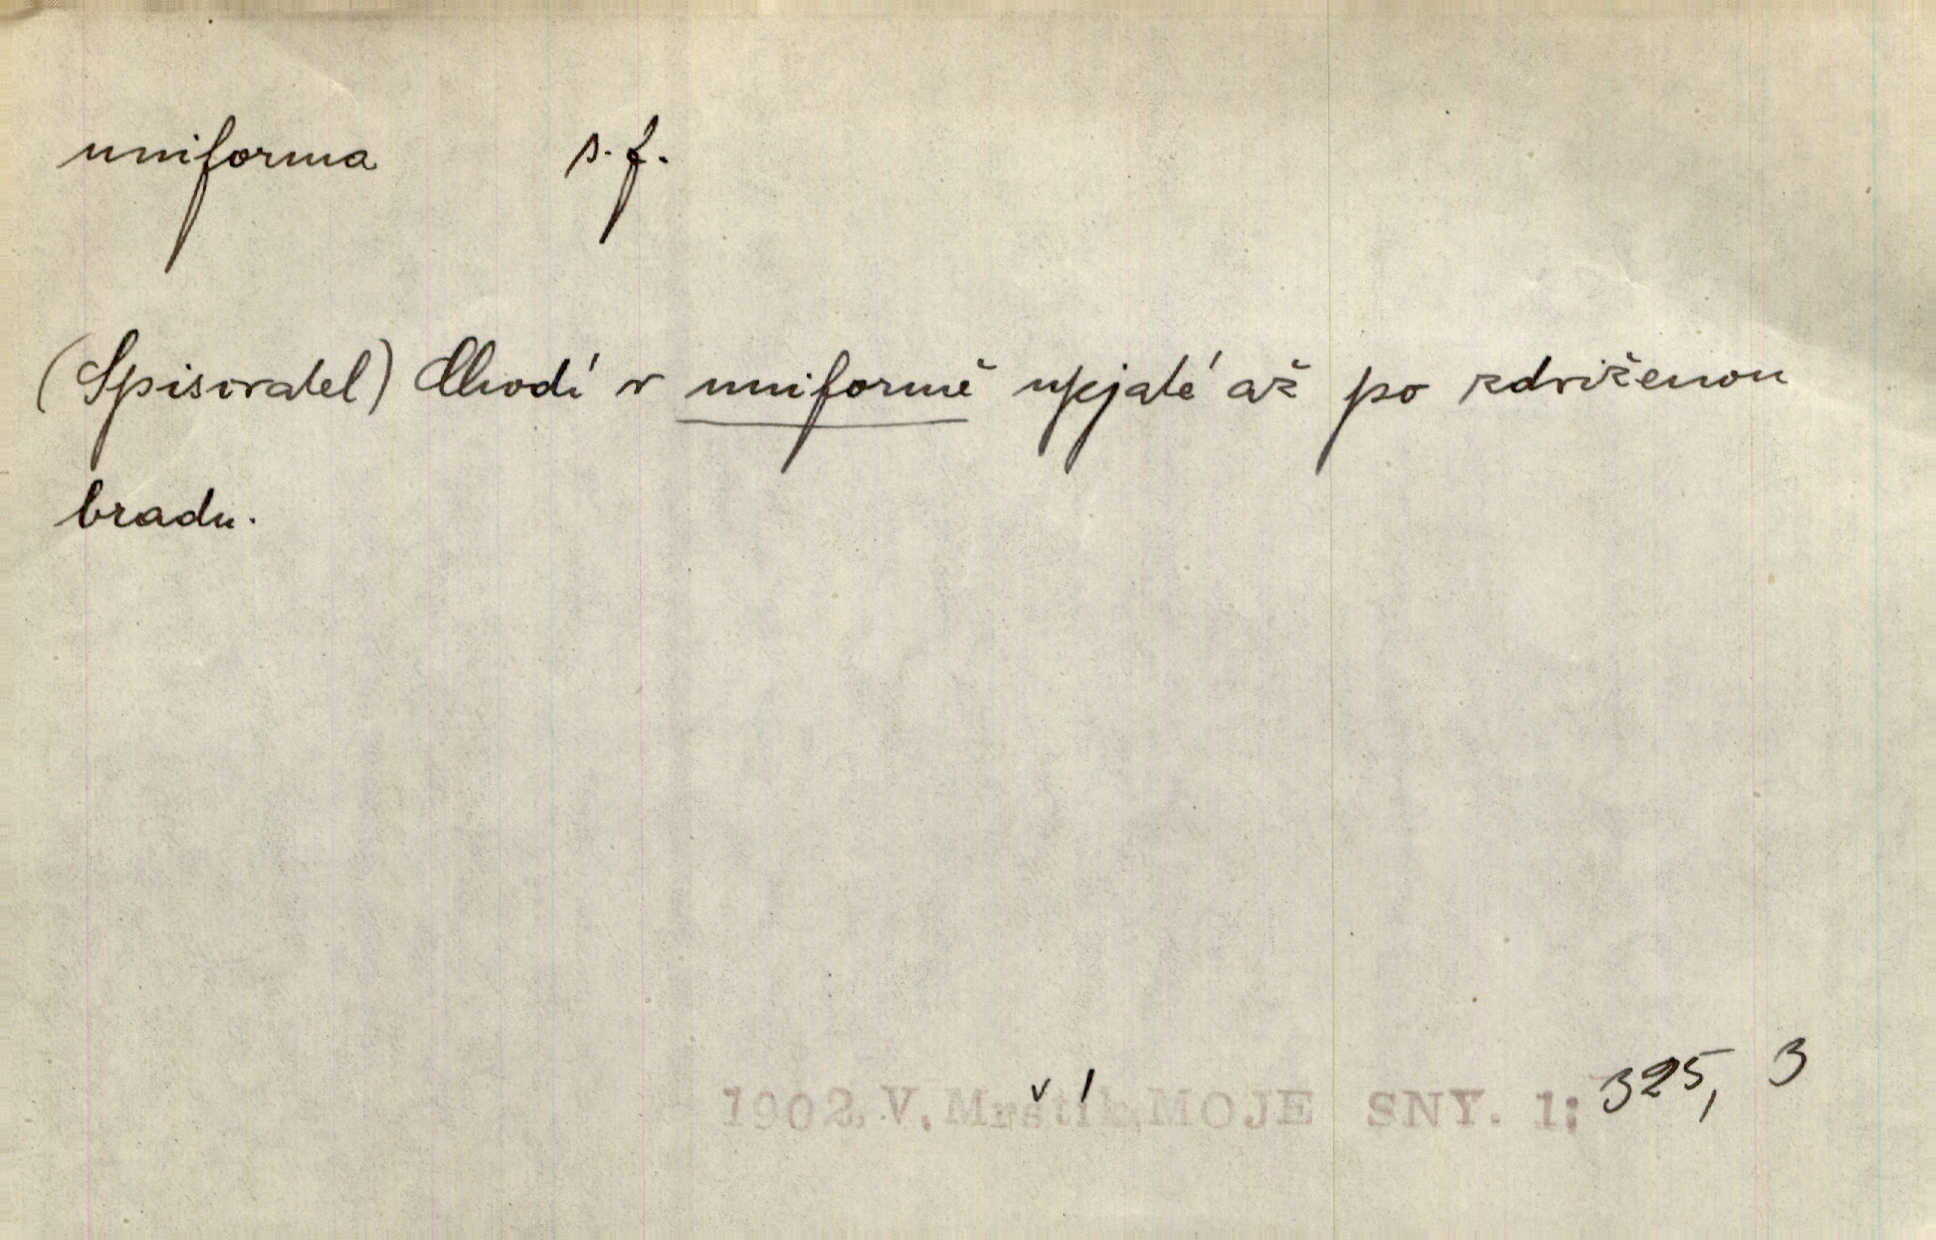 uniforma s. f.
(Spisovatel) Chodí v uniformě upjaté až po zdviženou
bradu.
1902, V. Mrštík, MOJE SNY. 1: 325, 3